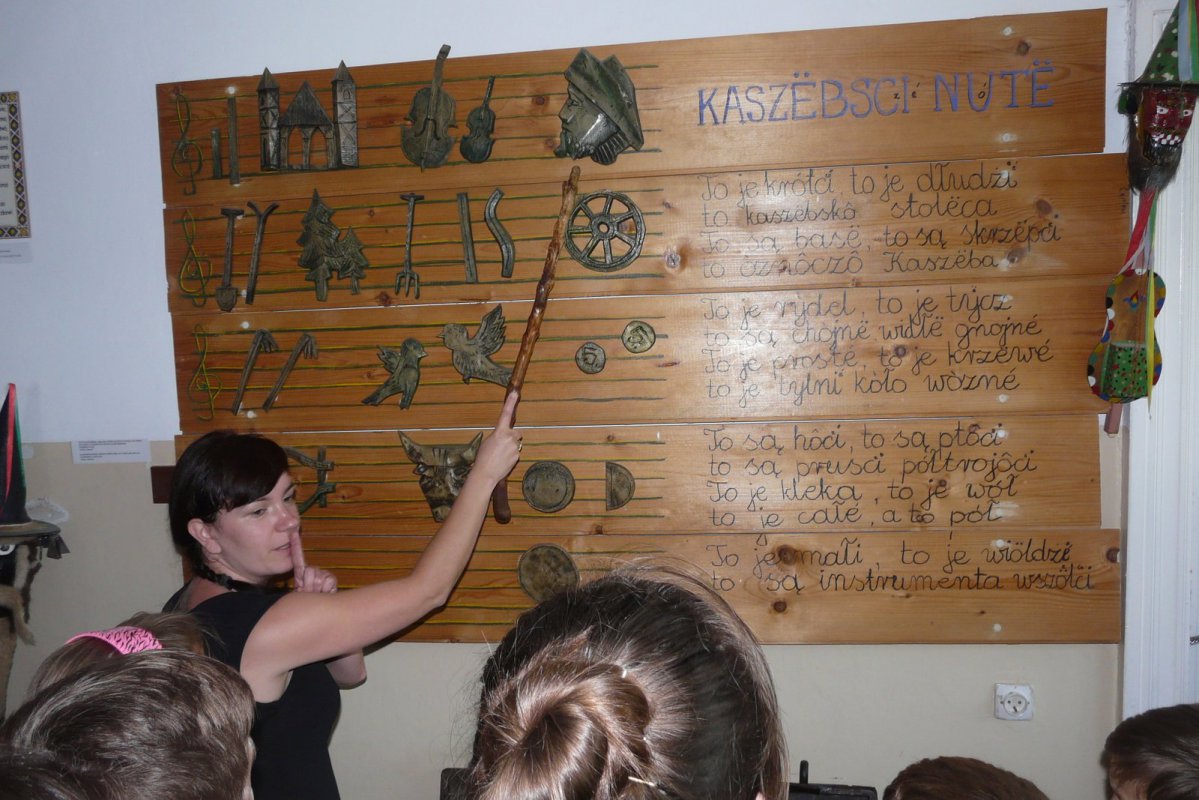 KASZËBSCÍ NÓTË
To je krótcí, to je dłudzi
to kaszëbskô stolëca
To są basë, to są skrzëpci
to òznôczô Kaszëba
To je rydel, to je tycz
to są chojnë widłë gnojné
To je prosté, to je krzëwé
to je tylni kòło wòzné
To są hôci, to są ptôci
to są prusci półtrojôci
To je kleka, to je wół
to je całé, a to pół
To je małi to je wiôldzi
to są instrumenta wszôlci